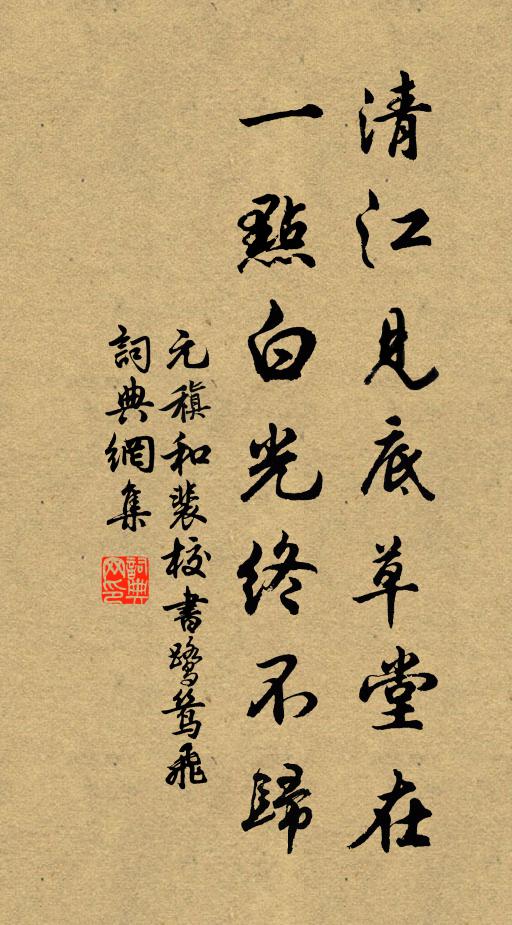 清江見底草堂在
一點白光終不歸
元稹和裴校書鷺鷥飛
詞典網集
詞典網印